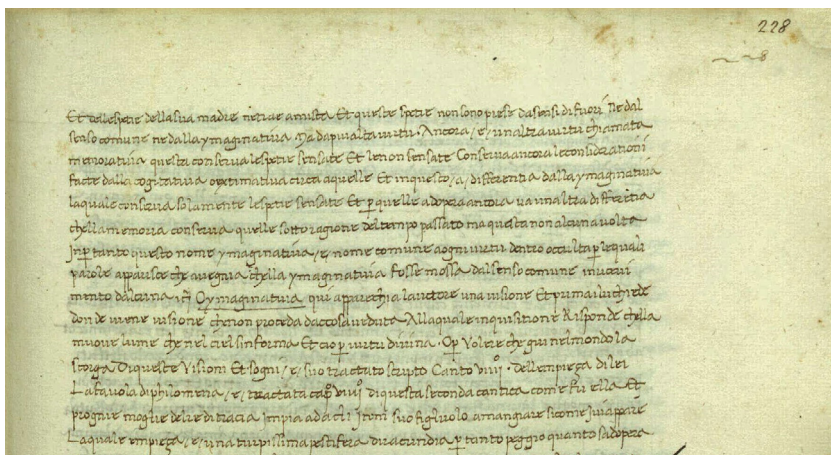 228
228
Et delle spetie della sua madre ne trae amista Et queste spetie non sono prese da sensi di fuori Ne dal
senso comune ne dalla ymaginativa Ma da piu alta virtu. Ancora /e/ unaltra virtu chiamata
memorativa questa conserva le spetie sensate Et le non sensate Conserva ancora le considerationi
facte dalla cogitativa o extimativa circa aquelle Et in questo /a/ differentia dalla ymaginativa
laquale conserva solamente le spetie sensate Et p quelle adopera ancora va unaltra differētia
chella memoria conserva quelle sotto ragione del tempo passato ma questa non alcuna volta
Inp tanto questo nome ymaginativa /e/ nome comune aogni virtu dentro occulta p le quali
parole apparisce che avegna chella ymaginativa fosse mossa dal senso comune
mento dalcuna O ymaginativa qui aparechia lauctore una visione Et prima lui chiede
donde viene visione che non proceda da cosa veduta Alla quale inquisitione Risponde chella
muove lume che nel ciel sinforma Et cio p virtu divina. O p Volere che giu nel mondo la
scorga Di queste Visioni Et sogni /e/ suo tractato scripto Canto viiii°. Dellempieça di lei
La favola di philomena /e/ tractata capº viiii° di questa seconda cantica come fu ella Et
progne moglie del re di tracia Impia adacti Itoni suo figluolo a mangiare sicome ivi appare
Laquale empieça /e/ una turpissima pestifera dira p tanto peggio quanto sadopera